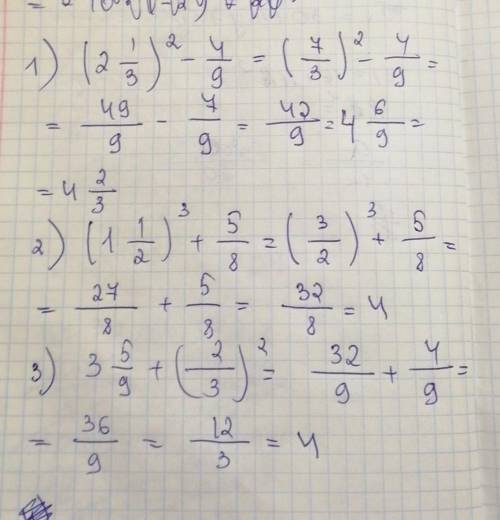 1) (2 1/3)^2 - 4/9 = (7/3)^2 - 4/9 =
= 49/9 - 7/9 = 42/9 = 4 6/9 =
= 4 2/3
2) (1 1/2)^3 + 5/8 = (3/2)^3 + 5/8 =
= 27/8 + 5/8 = 32/8 = 4
3) 3 5/9 + (2/3)^2 = 32/9 + 4/9 =
= 36/9 = 12/3 = 4